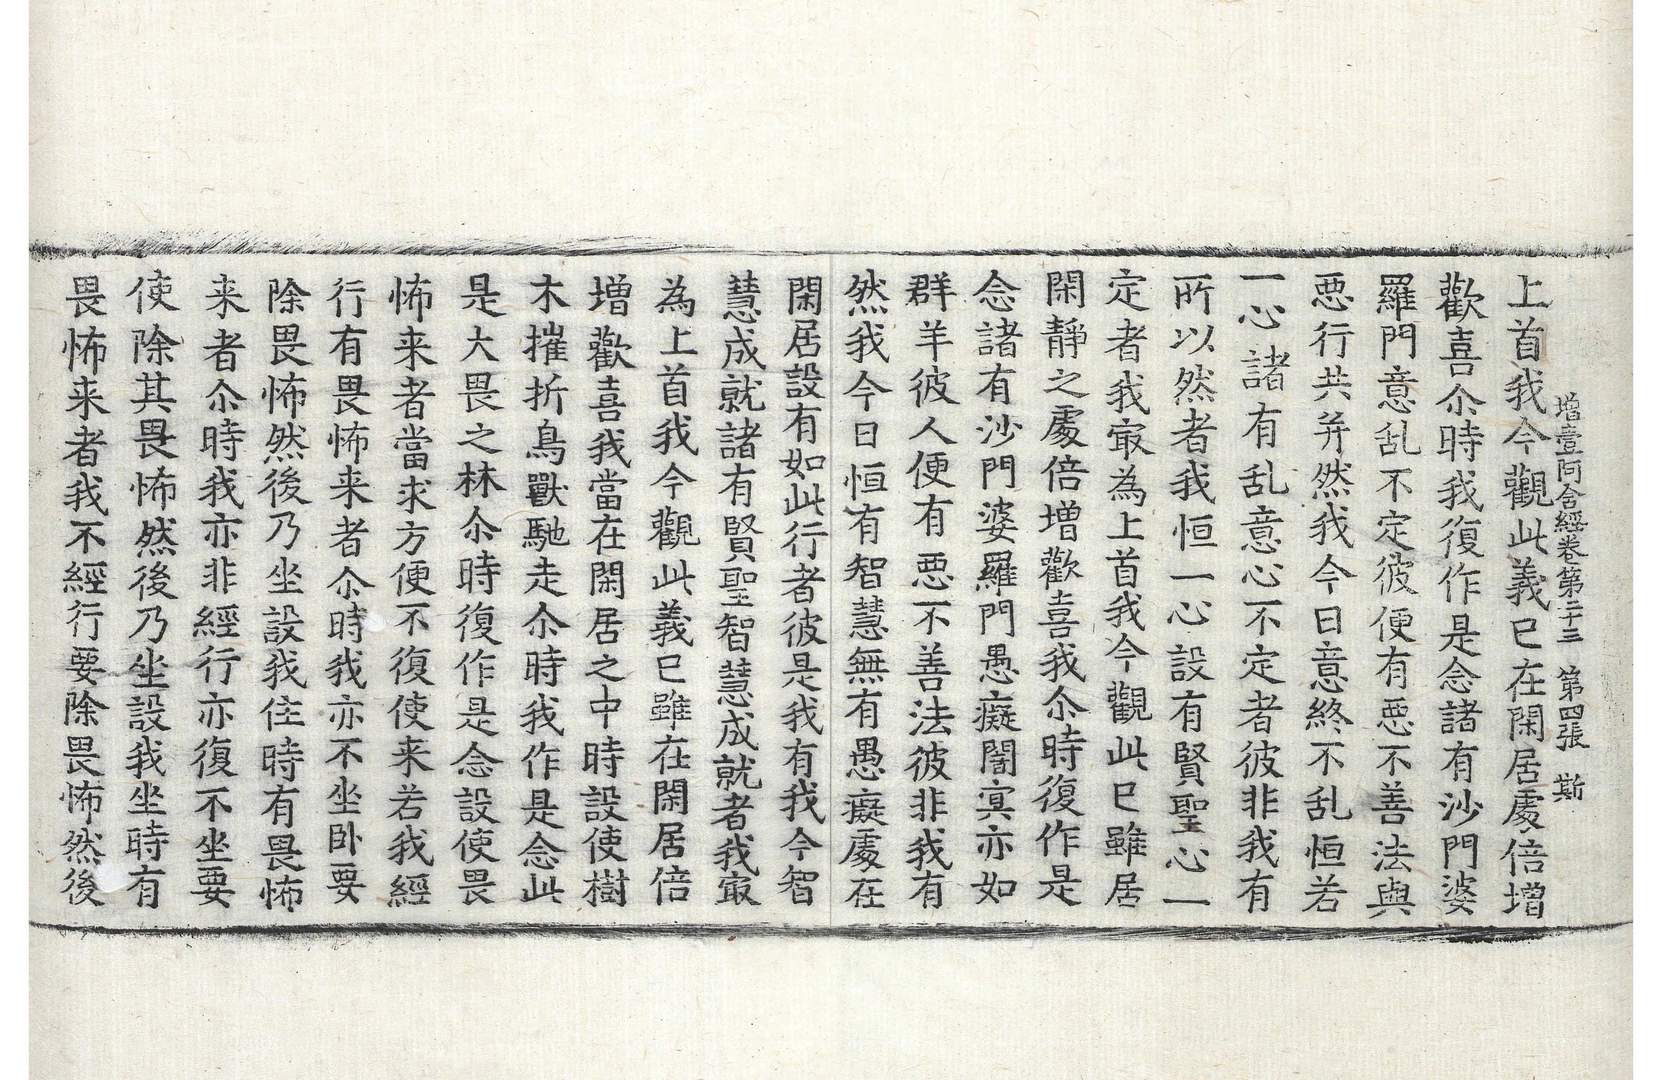 增壹阿含經卷第二十三　第四張　斯
上首我今觀此義已在閑居處倍增
歡喜尒時我復作是念諸有沙門婆
羅門意乱不定彼便有惡不善法與
惡行共并然我今日意終不乱恒若
一心諸有乱意心不定者彼非我有
所以然者我恒一心設有賢聖心一
定者我㝡為上首我今觀此已雖居
閑靜之處倍增歡喜我尒時復作是
念諸有沙門婆羅門愚癡闇冥亦如
群羊彼人便有惡不善法彼非我有
然我今日恒有智慧無有愚癡處在
閑居設有如此行者彼是我有我今智
慧成就諸有賢聖智慧成就者我㝡
為上首我今觀此義已雖在閑居倍
增歡喜我當在閑居之中時設使樹
木摧折鳥獸馳走尒時我作是念此
是大畏之林尒時復作是念設使畏
怖来者當求方便不復使来若我經
行有畏怖来者尒時我亦不坐卧要
除畏怖然後乃坐設我住時有畏怖
来者尒時我亦非經行亦復不坐要
使除其畏怖然後乃坐設我坐時有
畏怖来者我不經行要除畏怖然後